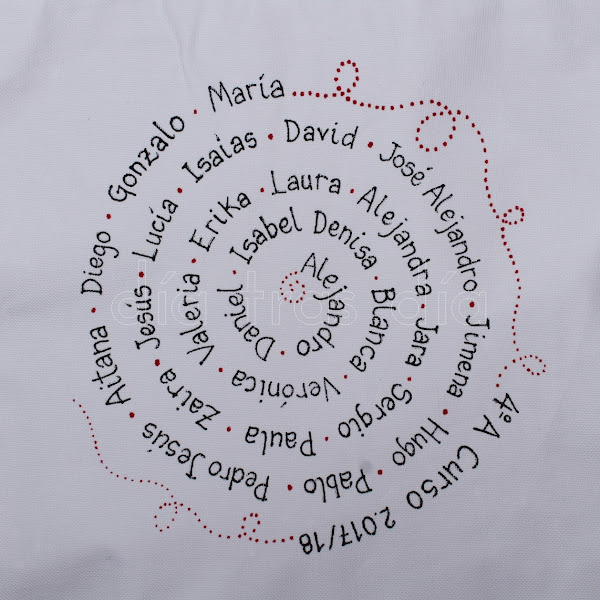 Alejandro • Daniel • Isabel Denisa • Blanca • Verónica • Valeria • Erika • Laura • Alejandra Jara • Sergio • Paula • Zaira • Jesús • Lucía • Isaias • David • José Alejandro • Jimena • Hugo • Pablo • Pedro Jesús • Aitana • Diego • Gonzalo • María
4º A Curso 2.017/18
día tras día